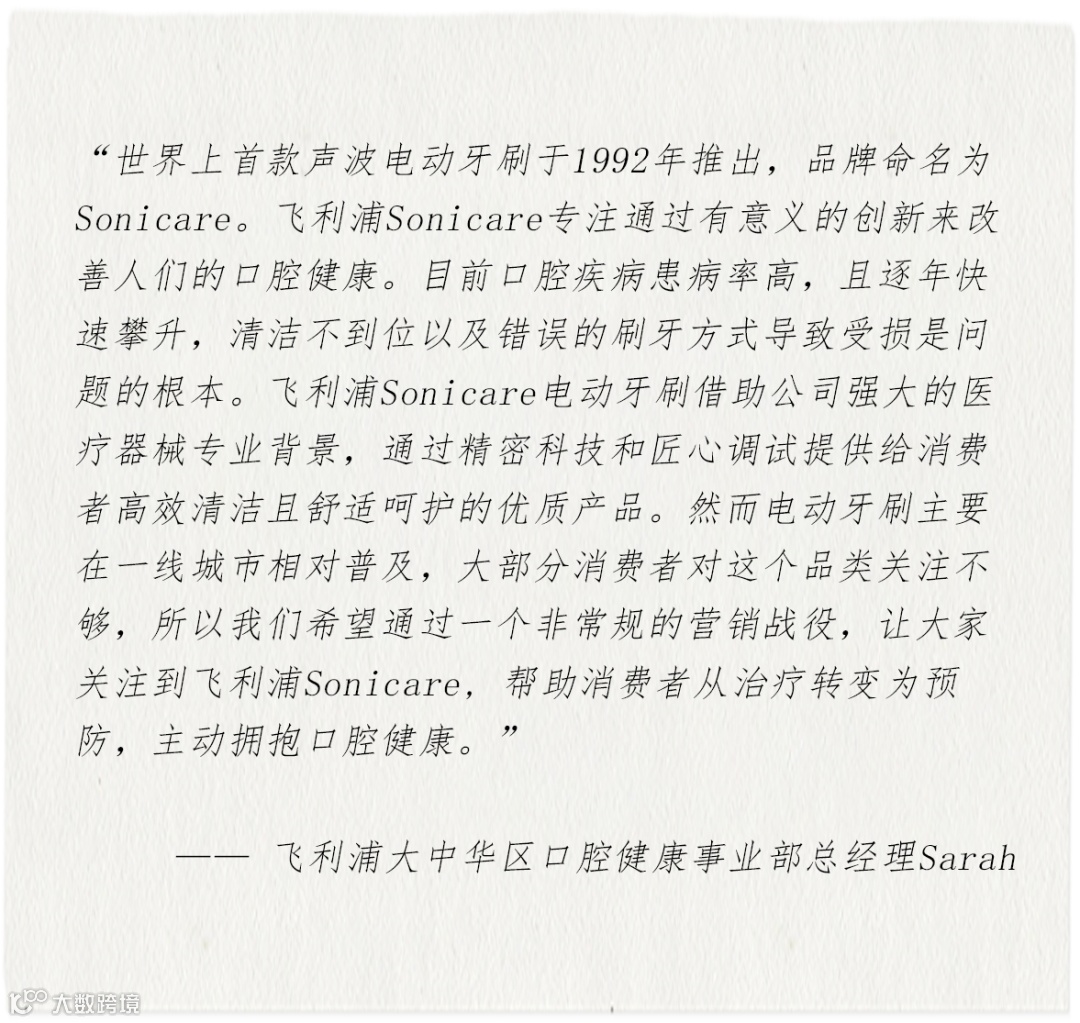 “世界上首款声波电动牙刷于1992年推出，品牌命名为
Sonicare。飞利浦Sonicare专注通过有意义的创新来改
善人们的口腔健康。目前口腔疾病患病率高，且逐年快
速攀升，清洁不到位以及错误的刷牙方式导致受损是问
题的根本。飞利浦Sonicare电动牙刷借助公司强大的医
疗器械专业背景，通过精密科技和匠心调试提供给消费
者高效清洁且舒适呵护的优质产品。然而电动牙刷主要
在一线城市相对普及，大部分消费者对这个品类关注不
够，所以我们希望通过一个非常规的营销战役，让大家
关注到飞利浦Sonicare, 帮助消费者从治疗转变为预
防，主动拥抱口腔健康。”
—— 飞利浦大中华区口腔健康事业部总经理Sarah
大数跨境